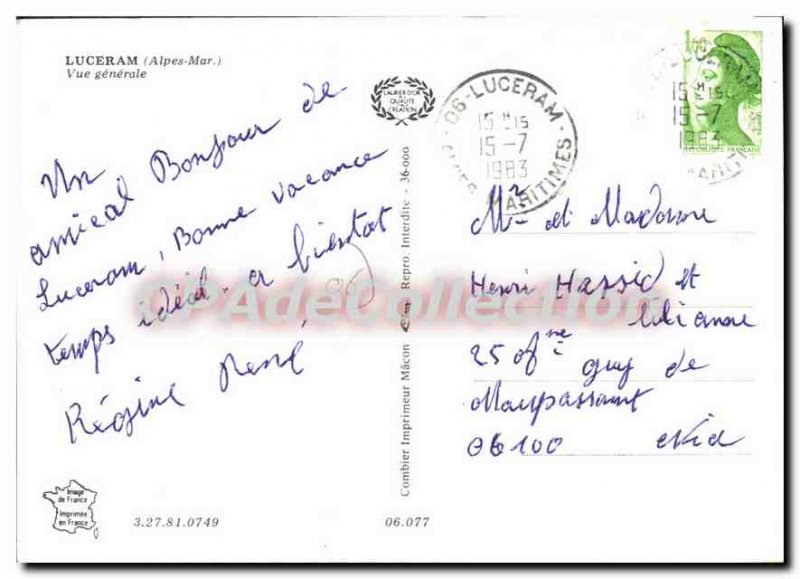 LUCERAM (Alpes-Mar.)
Vue générale
LAURIER D'OR
DE LA
QUALITÉ
CRÉATION
Un
amical Bonjour de
Luceram, Bonne vacance
temps idéal. a bientot
Régine René
Image
de France
Imprimée
en France
3.27.81.0749
06.077
Combier Imprimeur Mâcon
Repro. Interdite - 36.000
06-LUCERAM
15 H 15
15-7
1983
ALPES MARITIMES
15 H 15
15-7
1983
Mr et Madame
Henri Hassid et
liliane
25 guy de
Maupassant
06100 Nice
CPAdeCollection